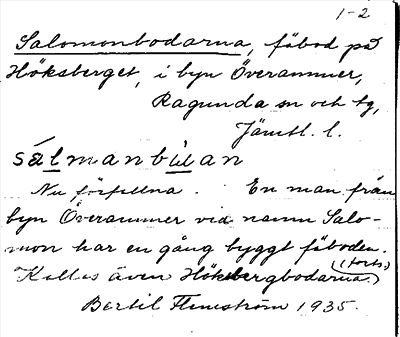 1-2
Salomonbodarna, fäbod på
Höksberget, i byn Överammer,
Ragunda sn och tg,
Jämtl. l.
sálmanbùan
Nu förfallna. En man från
byn Överammer vid namn Salo-
mon har en gång byggt fäboden.
Kallas även Höksbergbodarna. (forts.)
Bertil Flemström 1935.